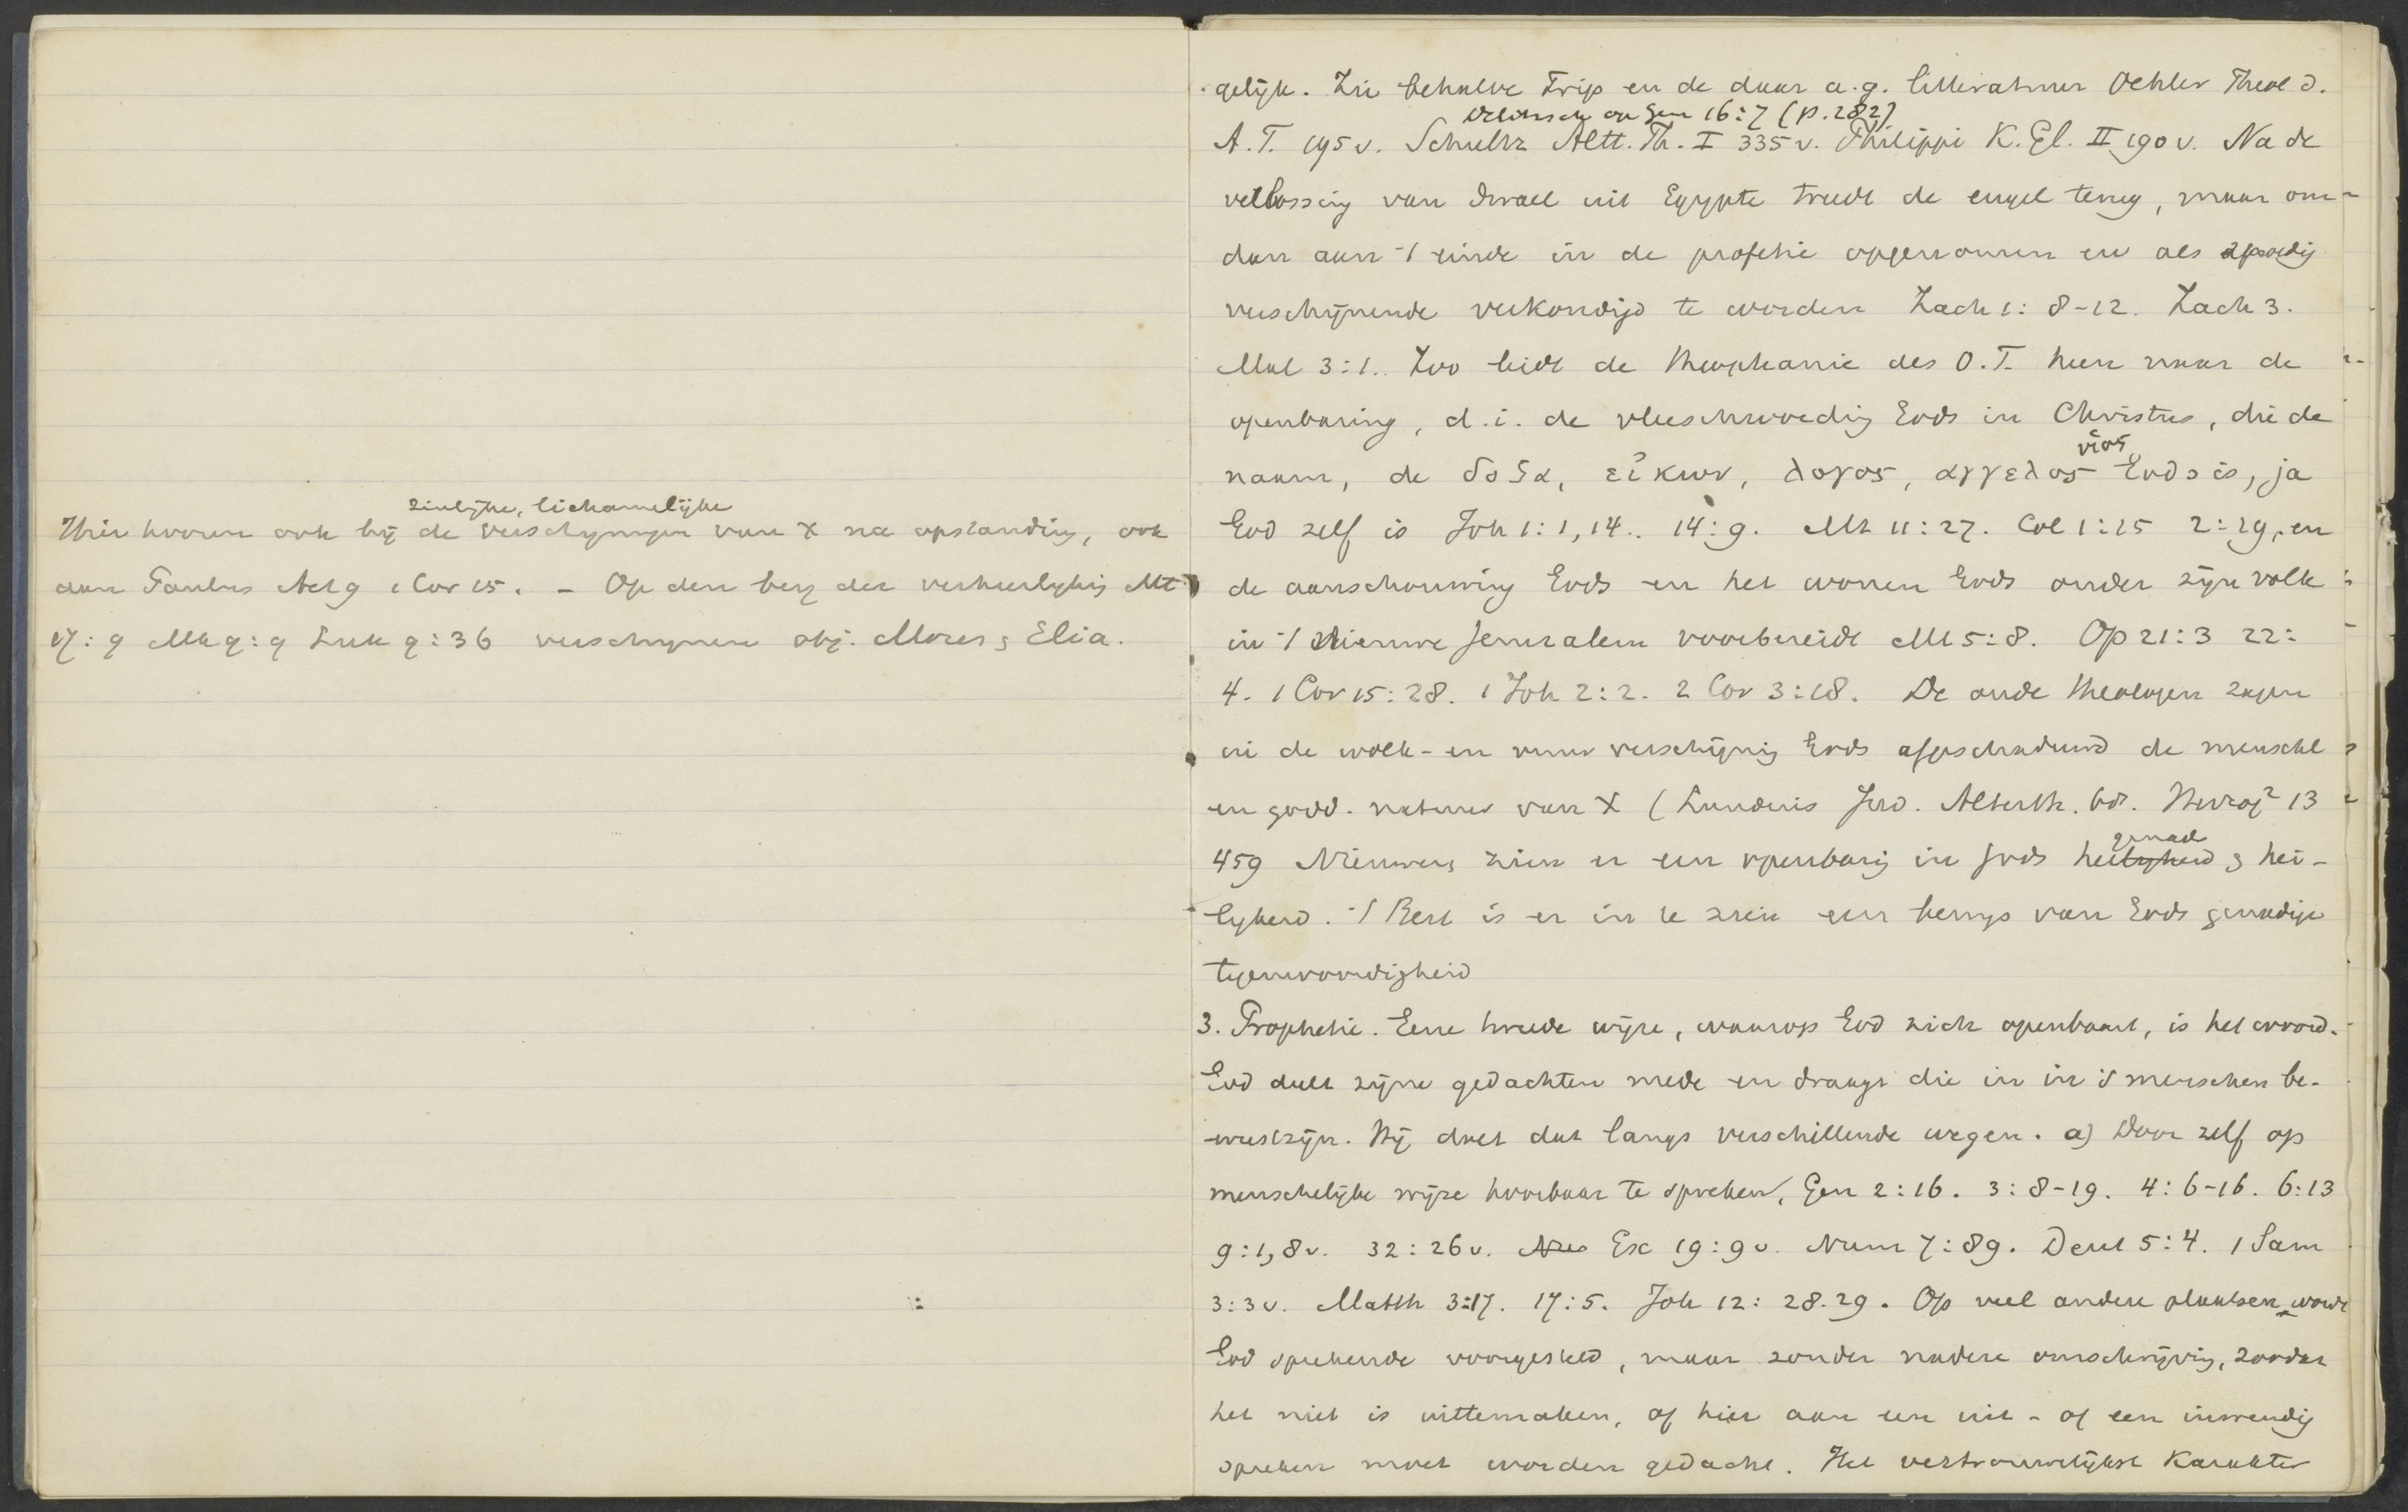 zinlijke, lichamelijke
Hier hooren ook bij de verschijningen van X na opstanding, ook
aan Paulus Act 9 1 Cor 15. - Op den berg der verheerlyking Mt
17:9 Mk 9:9 Luk 9:36 verschynen obj. Mozes & Elia.
gelijk. Zie behalve Trip en de daar a.g. litteratuur Oehler Theol d.
Delitzsch op Gen 16:7 (p. 282)
A.T. 195 v. Schultz Altt. Th. I 335 v. Philippi K. Gl. II 190 v. Na de
verlossing van Israel uit Egypte treedt de engel terug, maar om
dan aan 't einde in de profetie opgenomen en als spoedig
verschijnende verkondigd te worden Zach 1: 8-12. Zach 3.
Mal 3:1. Zoo leidt de theophanie des O.T. heen naar de
openbaring, d.i. de vleeschwording Gods in Christus, die de
υἱος
naam, de δοξα, εἰκων, λογος, αγγελος Gods is, ja
God zelf is Joh 1:1,14.. 14:9. Mt 11:27. Col 1:15 2:19, en
de aanschouwing Gods en het wonen Gods onder zijn volk
in 't nieuwe Jeruzalem voorbereidt Mt 5:8. Op 21:3 22:
4. 1 Cor 15:28. 1 Joh 2:2. 2 Cor 3:18. De oude theologen zagen
in de wolk- en vuur verschijning Gods afgeschaduwd de menschl
en godd. natuur van X (Lundius Jod. Alterth. bl. Herzog² 13
genade
459 Nieuwere zien er een openbaring in Gods heiligheid & hei-
lyheid. 't Best is er in te zien een bewys van Gods genadige
tegenwoordigheid
3. Prophetie. Eene tweede wijze, waarop God zich openbaart, is het woord.
God deelt zijne gedachten mede en draagt die in in 's menschen be-
wustzijn. Hij doet dat langs verschillende wegen. a) Door zelf op
menschelijke wijze hoorbaar te spreken, Gen 2:16. 3:8-19. 4:6-16. 6:13
9:1,8 v. 32:26 v. Ex 19:9 v. Num 7:89. Deut 5:4. 1 Sam
3:3 v. Matth 3:17. 17:5. Joh 12:28.29. Op veel andere plaatsen wordt
God sprekende voorgesteld, maar zonder nadere omschrijving, zoodat
het niet is uittemaken, of hier aan een uit- of een inwendig
spreken moet worden gedacht. Het vertrouwelijkst karakter